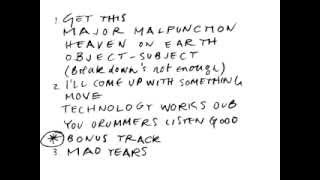 1 GET THIS
MAJOR MALFUNCTION
HEAVEN ON EARTH
OBJECT-SUBJECT
(Break down's not enough)
2 I'LL COME UP WITH SOMETHING
MOVE
TECHNOLOGY WORKS DUB
YOU DRUMMERS LISTEN GOOD
* BONUS TRACK
3 MAD YEARS